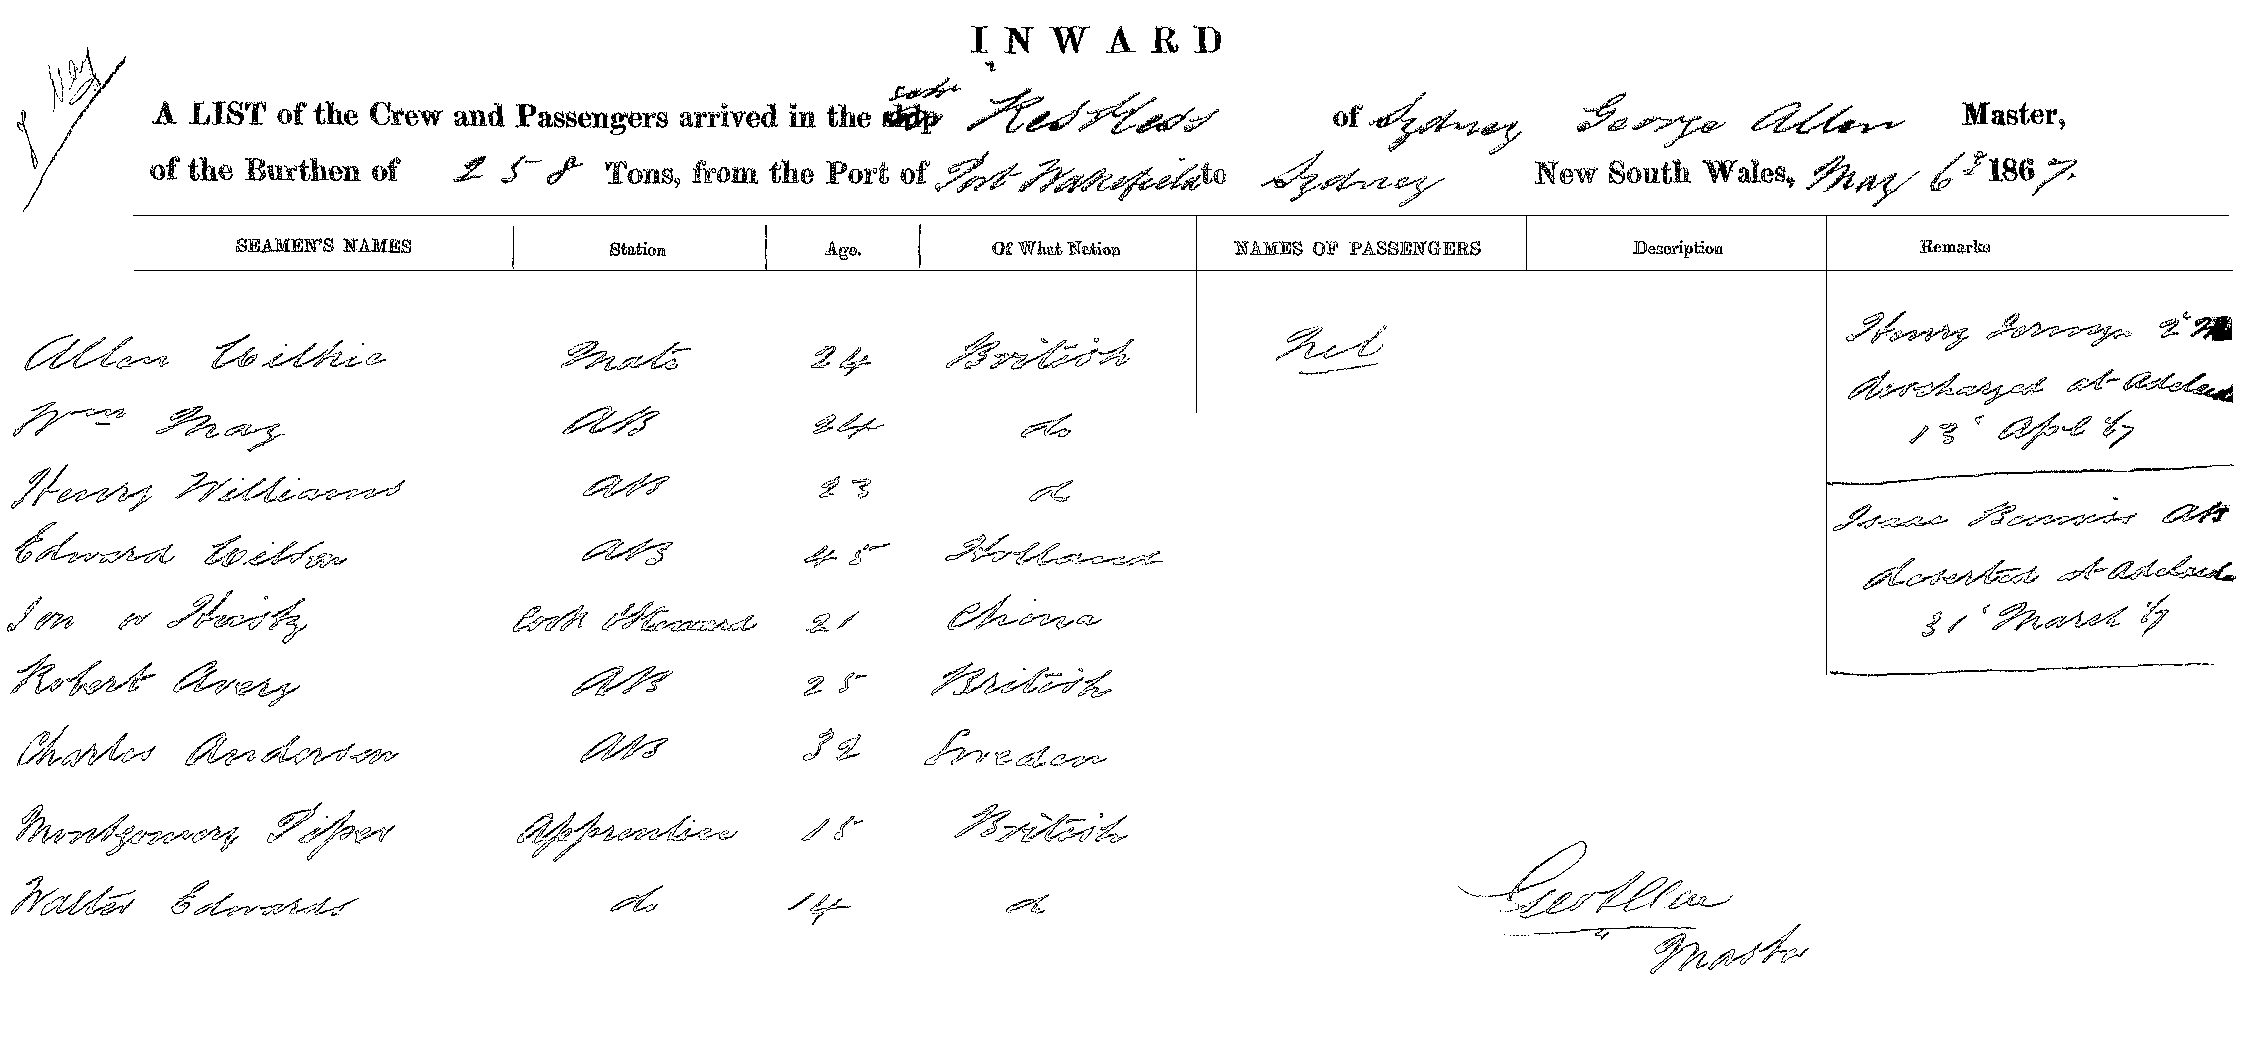 INWARD
8 May
A LIST of the Crew and Passengers arrived in the Restless of Sydney George Allen Master,
of the Burthen of 258 Tons, from the Port of Port Wakefield to Sydney New South Wales, May 6 1867.
SEAMEN'S NAMES Station Age. Of What Nation NAMES OF PASSENGERS Description Remarks
Allen Wilkie Mate 24 British Nil
Wm May AB 24 do
Henry Williams AB 23 do
Edward Wilson AB 45 Holland
Cook & Steward 21 China
Robert Avery AB 25 British
Charles Anderson AB 32 Sweden
Montgomery Piper Apprentice 15 British
Walter Edwards do 14 do
Henry 2
discharged at Adelaide
13 Apl 67
Isaac AB
deserted at Adelaide
31 March 67
Geo Allen
Master